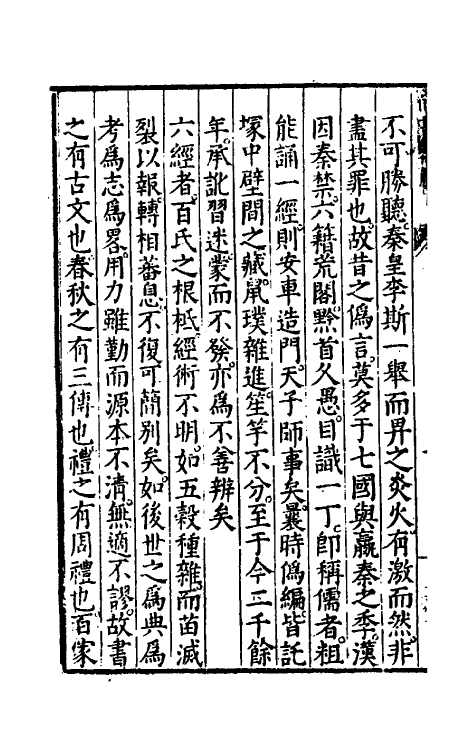 不可勝聽秦皇李斯一舉而畀之炎火有激而然非
盡其罪也故昔之偽言莫多于七國與嬴秦之季漢
因秦禁六籍荒閣黔首久愚目識一丁即稱儒者粗
能誦一經則安車造門天子師事矣曩時偽編皆託
塚中壁間之藏鼠璞雜進笙竽不分至于今二千餘
年承訛習迷蒙而不發亦為不善辨矣
六經者百氏之根柢經術不明如五穀種雜而苗滅
裂以報轉相蕃息不復可簡別矣如後世之為典為
考為志為畧用力雖勤而源本不清無適不謬故書
之有古文也春秋之有三傳也禮之有周禮也百家